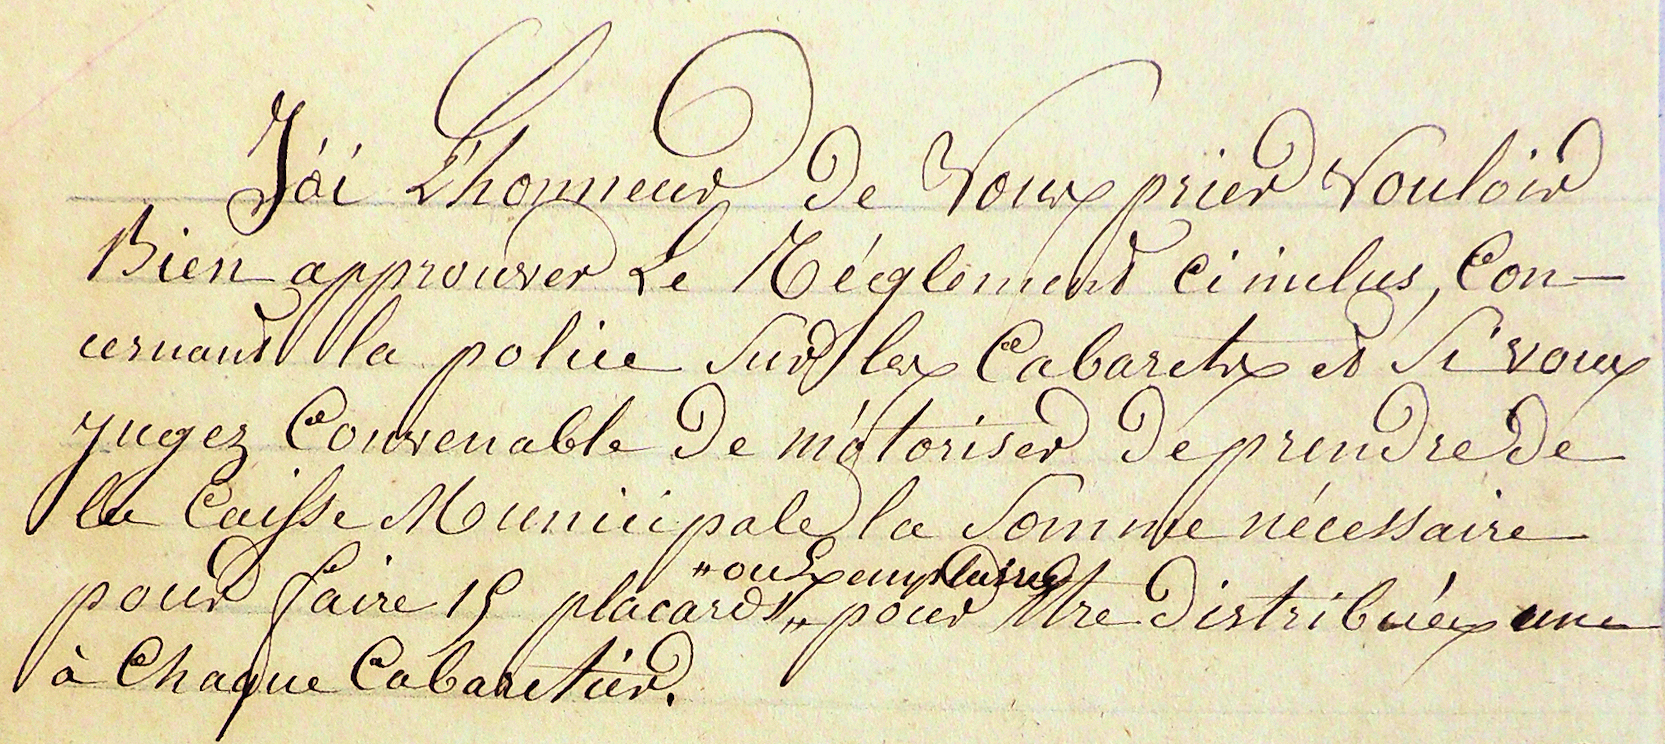 J'ai L'honneur de Vous prier Vouloir
Bien approuver Le Réglement ci inclus, Con-
cernant la police Sur les Cabarets et Si vous
jugez Convenable de m'atoriser de prendre de
la Caisse Municipale la Somme nécessaire
"ou Exemplaires
pour faire 15 placards" pour être distribués une
à Chaque Cabaretier.